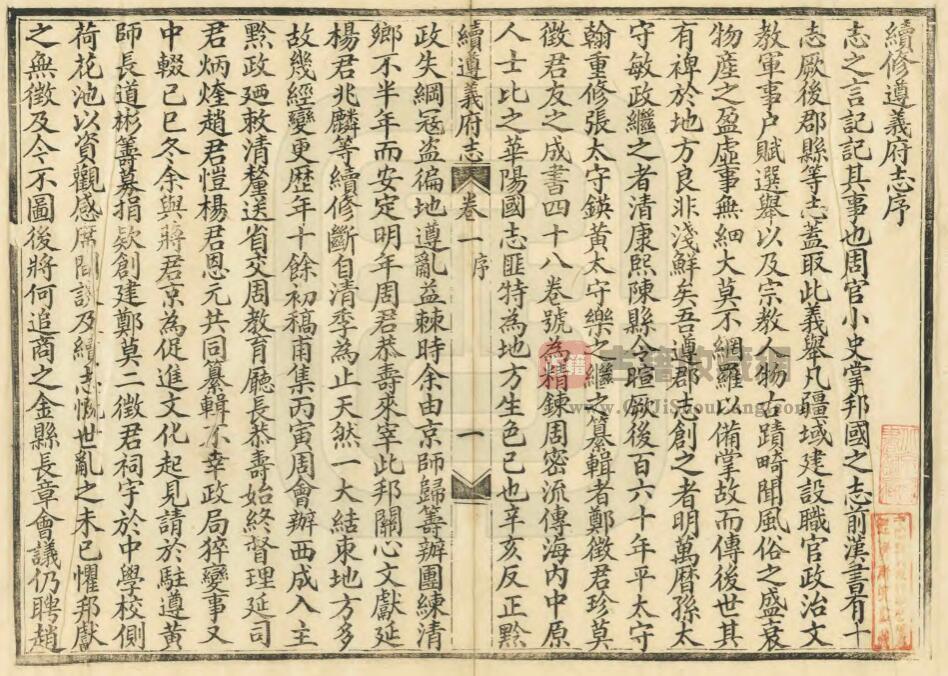 續修遵義府志序
志之言記記其事也周官小史掌邦國之志前漢書有十
志厥後郡縣等志蓋取此義舉凡疆域建設職官政治文
教軍事户賦選舉以及宗教人物古蹟畸聞風俗之盛衰
物產之盈虛事無細大莫不網羅以備掌故而傳後世其
有裨於地方良非淺鮮矣吾遵郡志創之者明萬曆孫太
守敏政繼之者清康熙陳縣令暄厥後百六十年平太守
翰重修張太守鍈黃太守樂之繼之纂輯者鄭徵君珍莫
徵君友之成書四十八卷號為精鍊周密流傳海內中原
人士比之華陽國志匪特為地方生色已也辛亥反正黔
續遵義府志 卷一 序 一
政失綱冦盗徧地遵亂益棘時余由京師歸籌辦團練清
鄉不半年而安定明年周君恭壽來宰此邦關心文獻延
楊君兆麟等續修斷自清季為止天然一大結束地方多
故幾經變更歷年十餘初稿甫集丙寅周會辦西成入主
黔政廼敕清釐送省交周教育廳長恭壽始終督理延司
君炳煃趙君愷楊君恩元共同纂輯不幸政局猝變事又
中輟己巳冬余與蔣君京為促進文化起見請於駐遵黃
師長道彬籌募捐欵創建鄭莫二徵君祠宇於中學校側
荷花池以資觀感席間談及續志慨世亂之未已懼邦獻
之無徵及今不圖後將何追商之金縣長章會議仍聘趙
書籍收藏網
www.GuJiShouCang.com